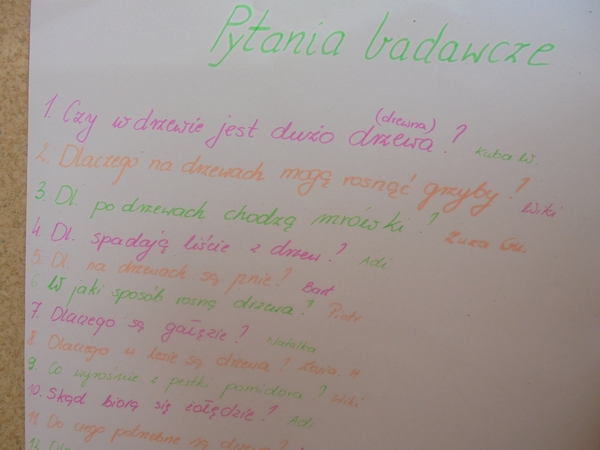 Pytania badawcze
(drewna)
1. Czy w drzewie jest dużo drzewa? Kuba W.
2. Dlaczego na drzewach mogą rosnąć grzyby? Wiki
3. Dl. po drzewach chodzą mrówki? Zuza Gu.
4. Dl. spadają liście z drzew? Adi
5. Dl. na drzewach są pnie? Bart
6. W jaki sposób rosną drzewa? Piotr
7. Dlaczego są gałęzie? Natalka
8. Dlaczego w lesie są drzewa? Zuza
9. Co wyrośnie z pestki pomidora? Wiki
10. Skąd biorą się żołędzie? Adi
11. Do czego potrzebne są drzewa?
12.